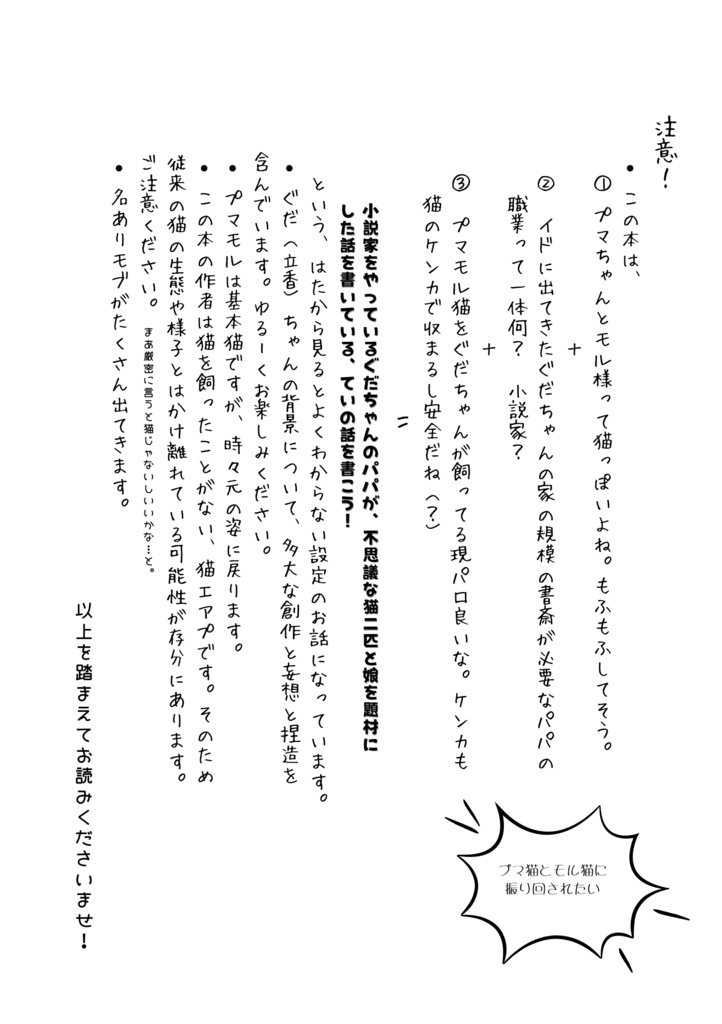 注意!
• この本は、
① プマちゃんとモル様って猫っぽいよね。もふもふしてそう。
+
② イドに出てきたぐだちゃんの家の規模の書斎が必要なパパの
職業って一体何? 小説家?
+
③ プマモル猫をぐだちゃんが飼ってる現パロ良いな。ケンカも
猫のケンカで収まるし安全だね(?)
=
小説家をやっているぐだちゃんのパパが、不思議な猫二匹と娘を題材に
した話を書いている、ていの話を書こう!
という、はたから見るとよくわからない設定のお話になっています。
• ぐだ(立香)ちゃんの背景について、多大な創作と妄想と捏造を
含んでいます。ゆるーくお楽しみください。
• プマモルは基本猫ですが、時々元の姿に戻ります。
• この本の作者は猫を飼ったことがない、猫エアプです。そのため
従来の猫の生態や様子とはかけ離れている可能性が存分にあります。
ご注意ください。 まあ厳密に言うと猫じゃないしいいかな…と。
• 名ありモブがたくさん出てきます。
以上を踏まえてお読みくださいませ!
プマ猫とモル猫に
振り回されたい